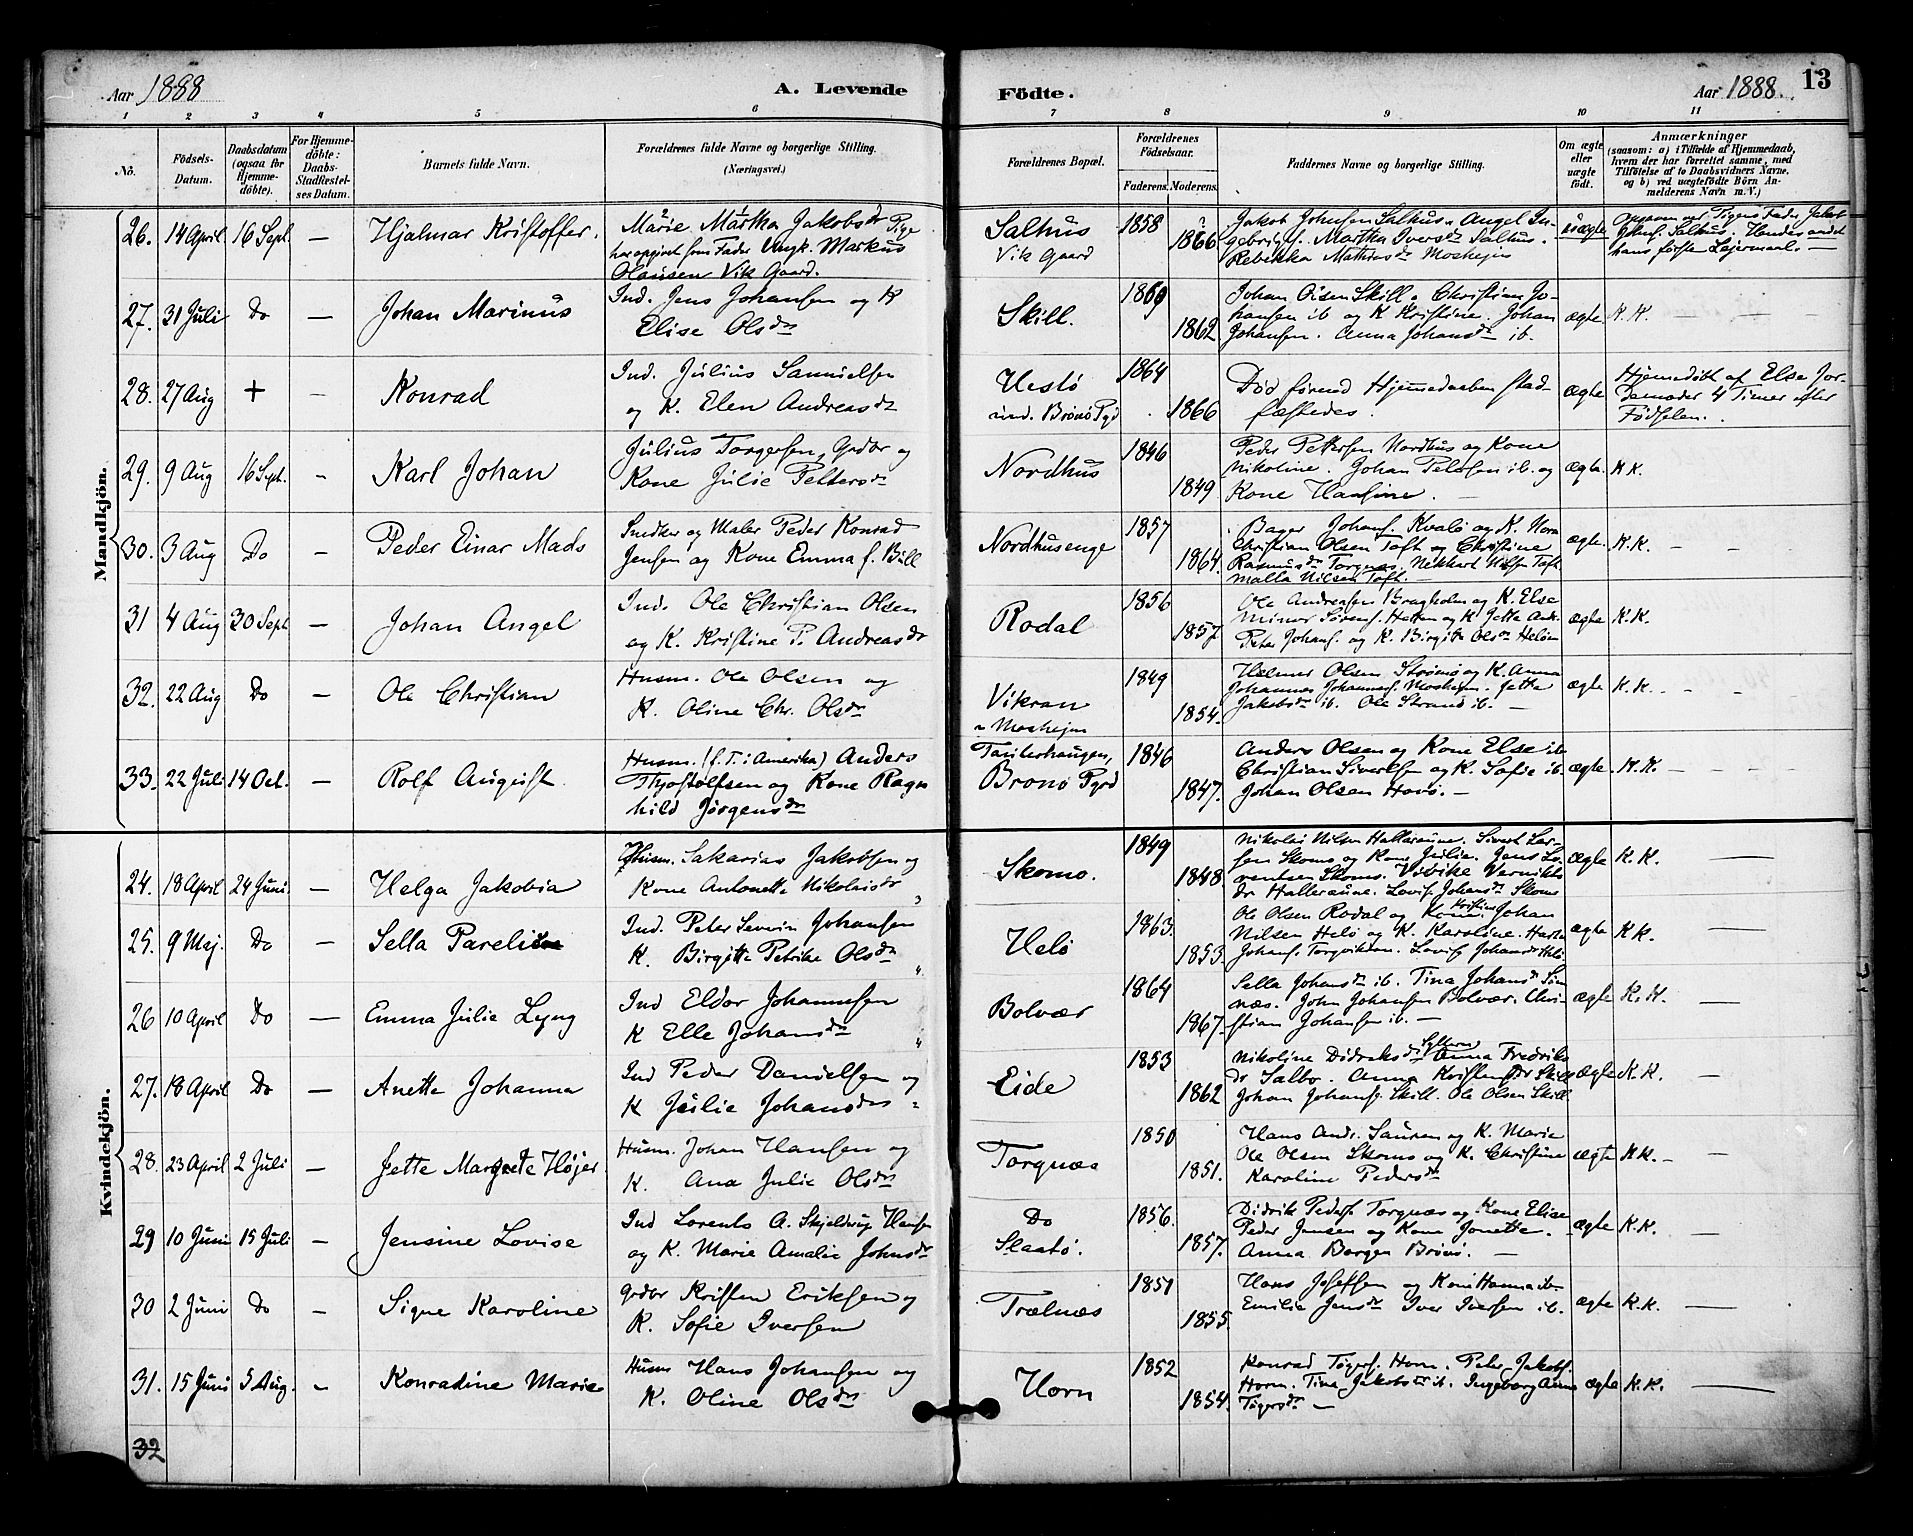 Aar 1888
A. Levende
Födte.
Aar 1888.
13
1 2 3 4 5 6 7 8 9 10 11
No.
Födsels-Datum.
Daabsdatum (ogsaa for Hjemme-döbte).
For Hjemme-döbte: Daabs-Stadfæstel-ses Datum.
Barnets fulde Navn.
Forældrenes fulde Navne og borgerlige Stilling. (Næringsvei.)
Forældrenes Bopæl.
Forældrenes Födselsaar.
Faderens. Moderens.
Faddernes Navne og borgerlige Stilling.
Om ægte eller uægte födt.
Anmærkninger
(saasom: a) i Tilfælde af Hjemmedaab,
hvem der har forrettet samme, med
Tilföielse af to Daabsvidners Navne.
og b) ved uægtefödte Börn An-
melderens Navn m. V.)
Mandkjön.
26. 14 April 16 Sept. — Hjalmar Kristoffer.
Marie Martha Jakobsdr Pige
har opgivet som Fader Ungk. Markus
Olausen Vik Gaard.
Salhus
Vik Gaard
1858
1866
Jakob Johnsen Salhus. Angel In-
gebrigs. Martha Iversdr Salhus.
Rebekka Mathiasdr Mosheim
uægte
27. 31 Juli Do — Johan Marinus
Ind. Jens Johansen og K
Elise Olsdr
Skill.
1860
1862
Johan Olsen Skill. Christian Jo-
hansen ib og K Kristine. Johan
Johansen. Anna Johansdr ib.
ægte. K. K. — — —
28. 27 Aug + — Konrad
Ind. Julius Samuelsen
og K. Elen Andreasdr
Hestø
ind. Brønø Pgd
1864
1866
Død førend Hjemmedaaben stad-
fæstedes.
ægte
Hjemedøbt af Else Jor-
demoder 4 Timer efter
Fødselen.
29. 9 Aug 16 Sept. — Karl Johan
Julius Torgersen, Grdbr og
Kone Julie Pettersdr
Nordhus
1846
1849
Peder Pettersen Nordhus og Kone
Nikoline. Johan ib. og
Kone Hansine. —
ægte. K K.
30. 3 Aug Do — Peder Einar Mads
Snedker og Maler Peder Konrad
Jensen og Kone Emma f. Bull
Nordhusenge
1857
1864.
Bager Johans. Kvalø og K.
Christian Olsen Toft og Christine
Rasmusdr Torgnæs. Nikhart Nilsen Toft
Malla Nilsen Toft. —
ægte. K. K. — — —
31 4 Aug 30 Sept — Johan Angel
Ind. Ole Christian Olsen
og K. Kristine P. Andreasdr
Rodal
1856
1857
Ole Andreasen Bragholm og K. Else
Minor Sørens. og K Jette
Peter Johans. og K. Birgitte Olsdr Heløen
ægte K. K.
32. 22 Aug Do — Ole Christian
Husm. Ole Olsen og
K. Oline Chr. Olsdr
Vikran
1849
1854.
Helmer Olsen Strømø og K. Anna
Johannes Johannes. Mosheim. Jette
Jakobsdr ib. Ole Strand ib. —
ægte K. K. — — —
33. 22 Juli 14 Oct. — Rolf August
Husm. (f. T. i Amerika) Anders
Thjostolfsen og Kone Ragn
hild Jørgensdr
Brønø Pgrd
1846
1847.
Anders Olsen og Kone Else ib
Christian Sivertsen og K. Sofie ib.
Johan Olsen Havø. —
ægte. K. K. — — —
Kvindekjön.
24. 18 April 24 Juni. — Helga Jakobia
Husm. Sakarias Jakobsen og
Kone Antonette Nikolaisdr
Skomo.
1849
1848.
Nikolai Nilsen Halleraune. Sivert Lar-
sen Skomo og Kone Julie. Jens Lo-
rentsen Skomo. Vivike
dr Halleraune. Lovis. Johansdr Skomo
ægte K. K. —
25. 9 Maj. Do — Sella Pareline
Ind. Peter Severin Johansen
K. Birgitte Petrike Olsdr
Helø
1863.
1853.
Ole Olsen Rodal og Kone Kristine. Johan
Nilsen Helø og K. Karoline.
Johans. Torgvikdan. Lovis. Johansdr Helø
ægte K K. —
26 10 April Do — Emma Julie Lyng
Ind Eldor Johannesen
K Elle Johansdr
Bolvær
1864
1867.
Sella Johansdr ib. Tina Johansdr Søm-
næs. John Johansen Bolvær. Chri-
stian Johansen ib. —
ægte K. K. —
27. 18 April Do — Anette Johanna
Ind Peder Danielsen og
K Julie Johansdr
Eide
1853
1862
Nikoline Didreksdr Anna Fredriks
dr Salbo. Anna Kristendr Skill
Johan Johans. Skill. Ole Olsen Skill
ægte K. K. —
28. 23 April 2 Juli — Jette Margrete Høyer.
Husm. Johan Hansen og
K. Ana Julie Olsdr
Torgnæs
1850
1851.
Hans Andr. Sausen og K. Marie
Ole Olsen Skomo og K. Christine
Karoline Pedersdr
ægte K K. — —
29 10 Juni 15 Juli — Jensine Lovise
Ind Lorents A. Skjeldrup Hansen
og K. Marie Amalie Johnsdr
Do
Slaatø.
1856.
1857.
Didrik Peders. Torgnæs og Kone Elise
Peder Jensen og Kone Jonette.
Anna Bergen Brønø. —
ægte K. K. —
30 2 Juni Do — Signe Karoline
Grdbr Kristen Eriksen og
K. Sofie Iversen
Trælnæs
1851
1855.
Hans Josefsen og Kone Hanna ib.
Emilie Jensdr Iver Iversen ib.
ægte K. K. —
31. 15 Juni 5 Aug. — Konradine Marie
Husm Hans Johansen og
K. Oline Olsdr
Horn
1852
1854.
Konrad Tøgers. Horn. Peter Jakobs.
Horn. Tina Jakobsdr ib. Ingeborg Anne
Tøgersdr —
ægte K. K. —
32